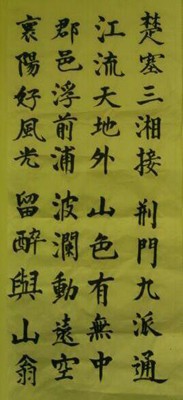 楚塞三湘接荊門九派通
江流天地外山色有無中
郡邑浮前浦波瀾動遠空
襄陽好風光留醉與山翁